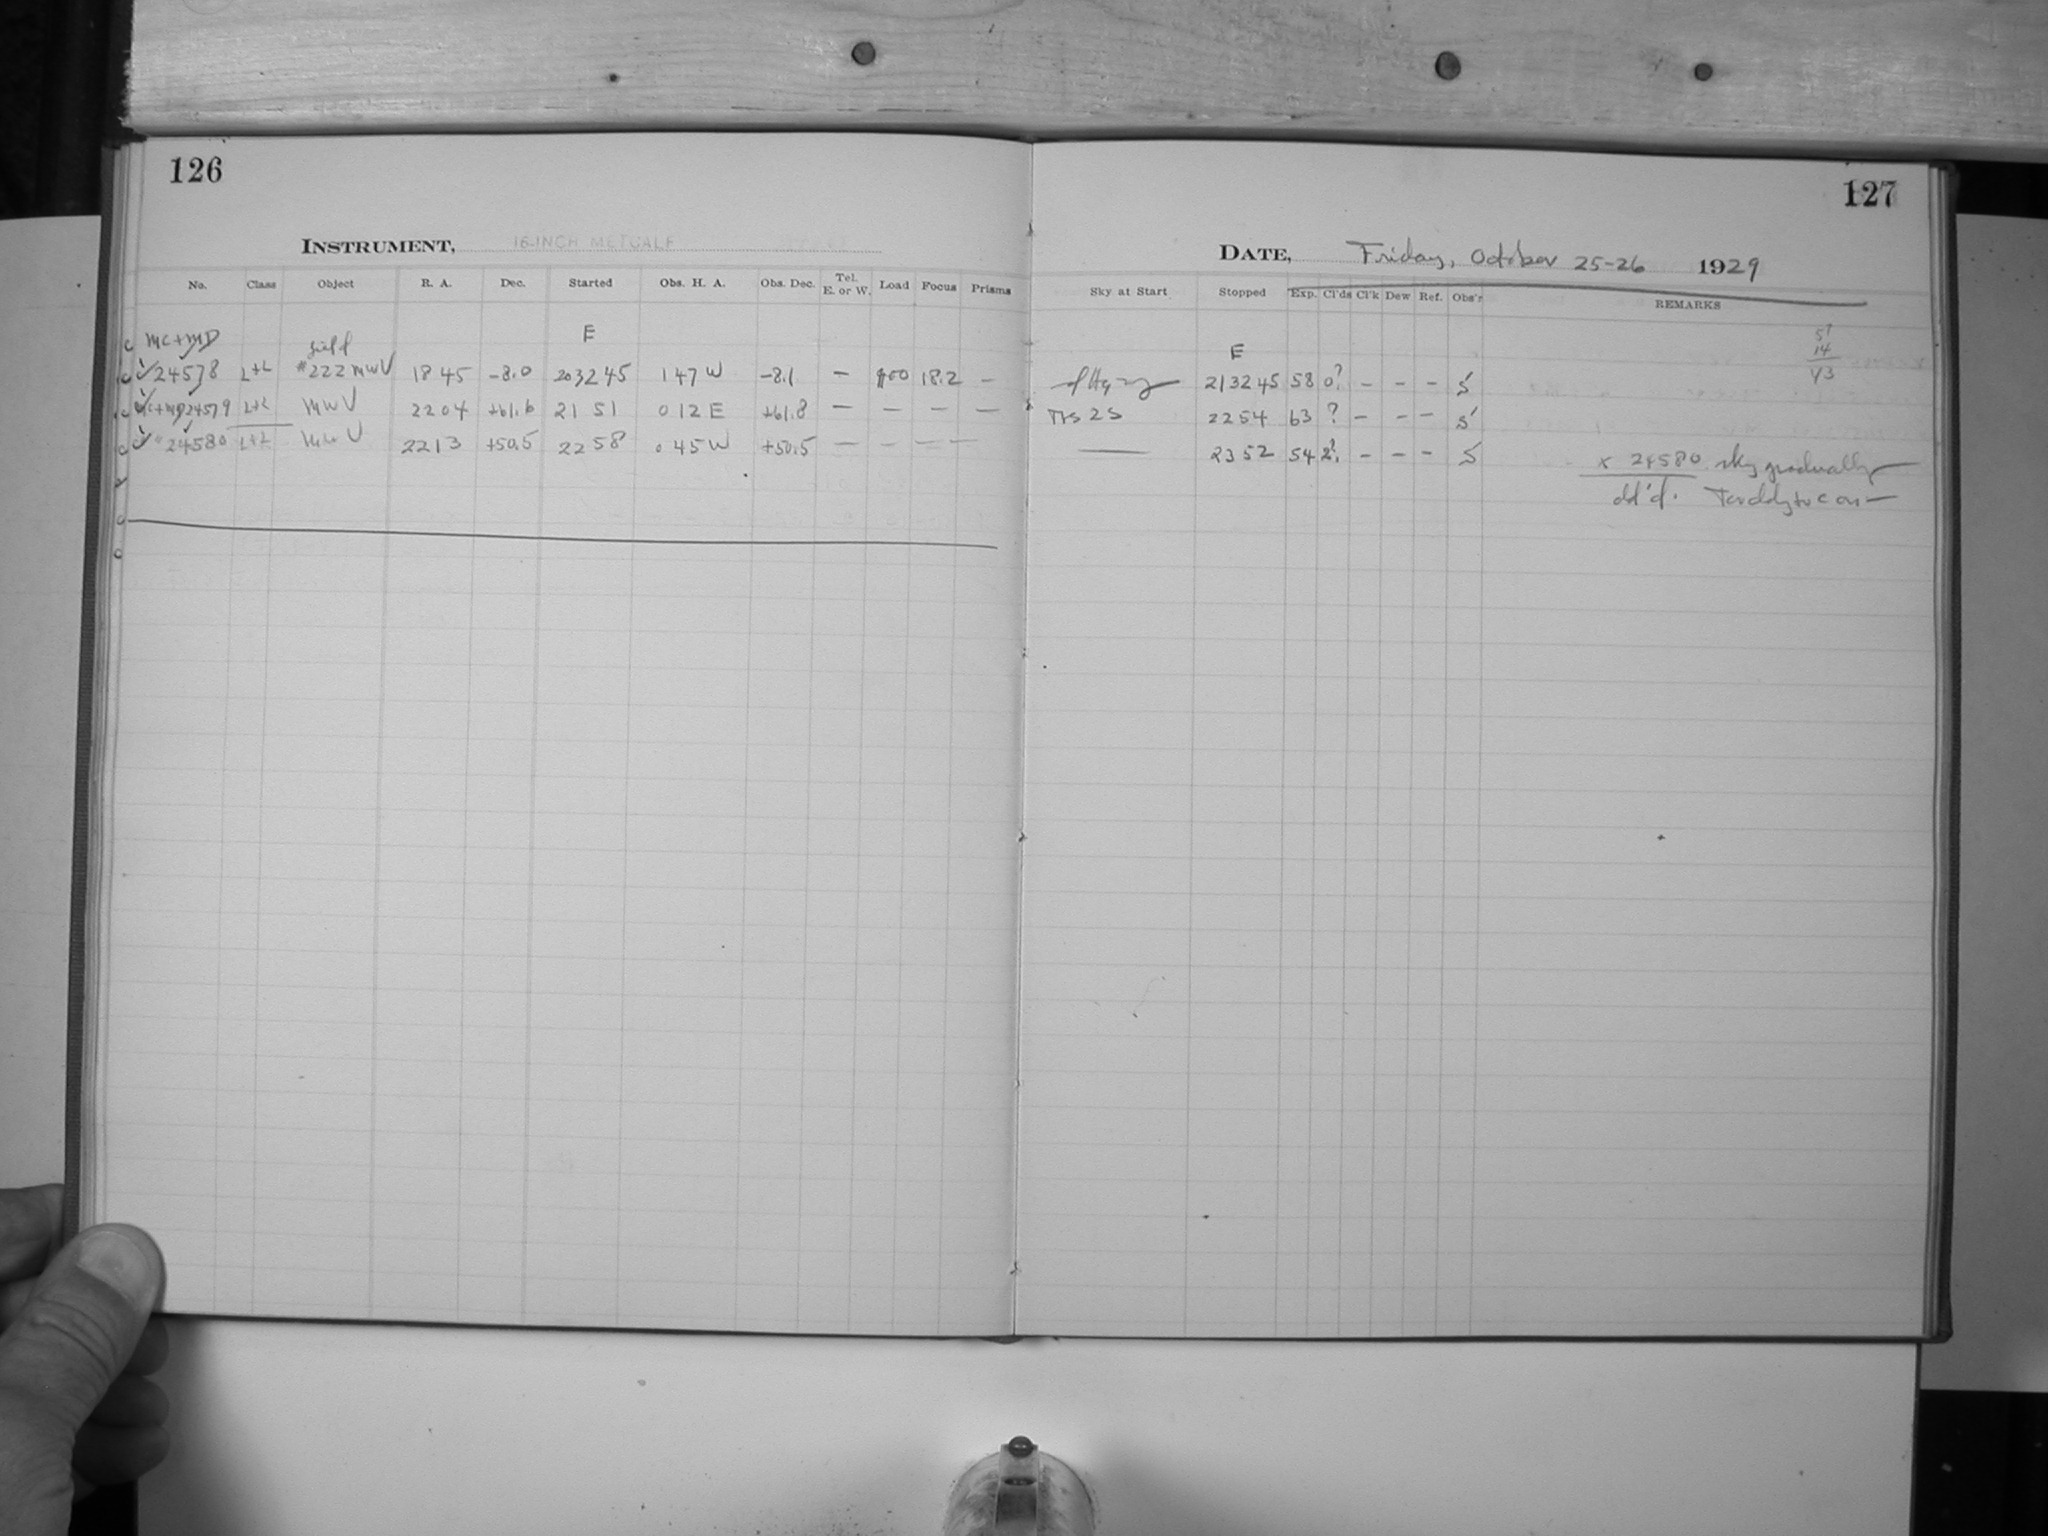 126
INSTRUMENT, 16-INCH METCALF
No. Class Object R. A. Dec. Started Obs. H. A. Obs. Dec. Tel. E. or W. Load Focus Prisms
E
MC+MD field
24578 L+L #222 MWV 18 45 -8.0 203245 1 47 W -8.1 — 18.2 —
MC+MD 24579 L+L MWV 22 04 +61.6 21 51 0 12 E +61.8 — — — —
" 24580 L+L MWV 22 13 +50.5 22 58 0 45 W +50.5 — — — —
127
DATE, Friday, October 25-26 1929
Sky at Start Stopped Exp. Cl'ds Cl'k Dew Ref. Obs'r REMARKS
5?
14
43
E
213245 58 0? — — — S'
22 54 63 ? — — — S'
— 23 52 54 2? — — — S
x 24580 sky gradually